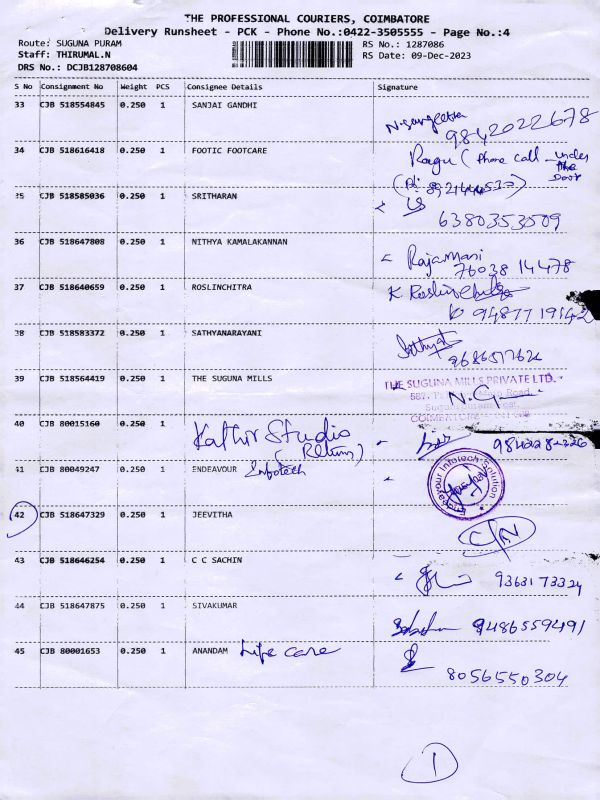 THE PROFESSIONAL COURIERS, COIMBATORE
Delivery Runsheet - PCK - Phone No.:0422-3505555 - Page No.:4
Route: SUGUNA PURAM
RS No.: 1287086
Staff: THIRUMAL.N
RS Date: 09-Dec-2023
DRS No.: DCJB128708604
S No Consignment No Weight PCS Consignee Details Signature
33 CJB 518554845 0.250 1 SANJAI GANDHI
N. Sangeetha
9842022678
34 CJB 518616418 0.250 1 FOOTIC FOOTCARE
Ragu (Phone call - under the Door
35 CJB 518585036 0.250 1 SRITHARAN
6380353509
36 CJB 518647808 0.250 1 NITHYA KAMALAKANNAN
Rajamani
76038 14478
37 CJB 518640659 0.250 1 ROSLINCHITRA
K. Roslinchitra
9487719142
38 CJB 518583372 0.250 1 SATHYANARAYANI
39 CJB 518564419 0.250 1 THE SUGUNA MILLS
THE SUGUNA MILLS PRIVATE LTD.
40 CJB 80015160 0.250 1 Kathir Studio
(Return)
41 CJB 80049247 0.250 1 ENDEAVOUR Infotech
Endeavour Infotech Solution
42 CJB 518647329 0.250 1 JEEVITHA
C/N
43 CJB 518646254 0.250 1 C C SACHIN
9363173324
44 CJB 518647875 0.250 1 SIVAKUMAR
9486559491
45 CJB 80001653 0.250 1 ANANDAM Life care
8056550304
1